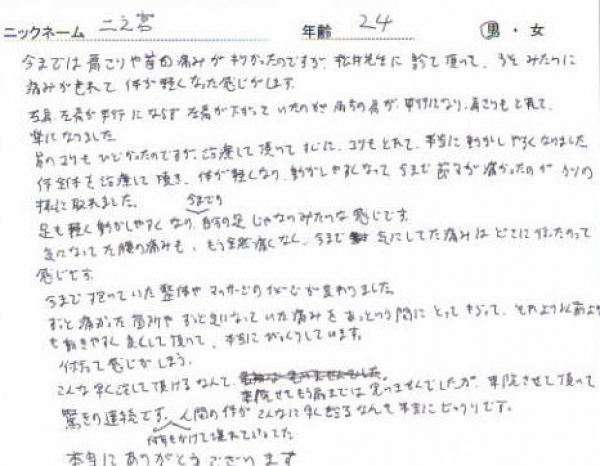 ニックネーム 二之宮 年齢 24 男・女
今までは肩こりや首の痛みがキツかったのですが、松井先生に診て頂いて、うそみたいに
痛みがとれて 体が軽くなった感じがします。
右肩、左肩が平行にならず左肩が下がっていたのが両方の肩が、平行になり、肩こりもとれて、
楽になりました。
肩のコリもひどかったのですが、治療して頂いてすぐに、コリもとれて、本当に動かしやすくなりました。
体全体も治療して頂き、体が軽くなり、動かしやすくなって 今まで節々が痛かったのが ウソの
様に取れました。
足も軽く動かしやすくなり、今までの自分の足じゃないみたいな感じです。
気になってた腰の痛みも、もう全然痛くなく、今まで気にしてた痛みはどこに行ったのって
感じです。
今まで抱いていた整体やマッサージのイメージが変わりました。
ずっと痛かった箇所やずっと気になっていた痛みをあっという間にとってもらって、それより以前より
も動きやすく良くして頂いて、本当にびっくりしています。
こんな早く治して頂けるなんて、来院させてもらう前までは思いませんでしたが、来院させて頂いて
驚きの連続です。人間の体がこんなに早く治るなんて本当にビックリです。
何年もかけて壊れていってた
本当にありがとうございます